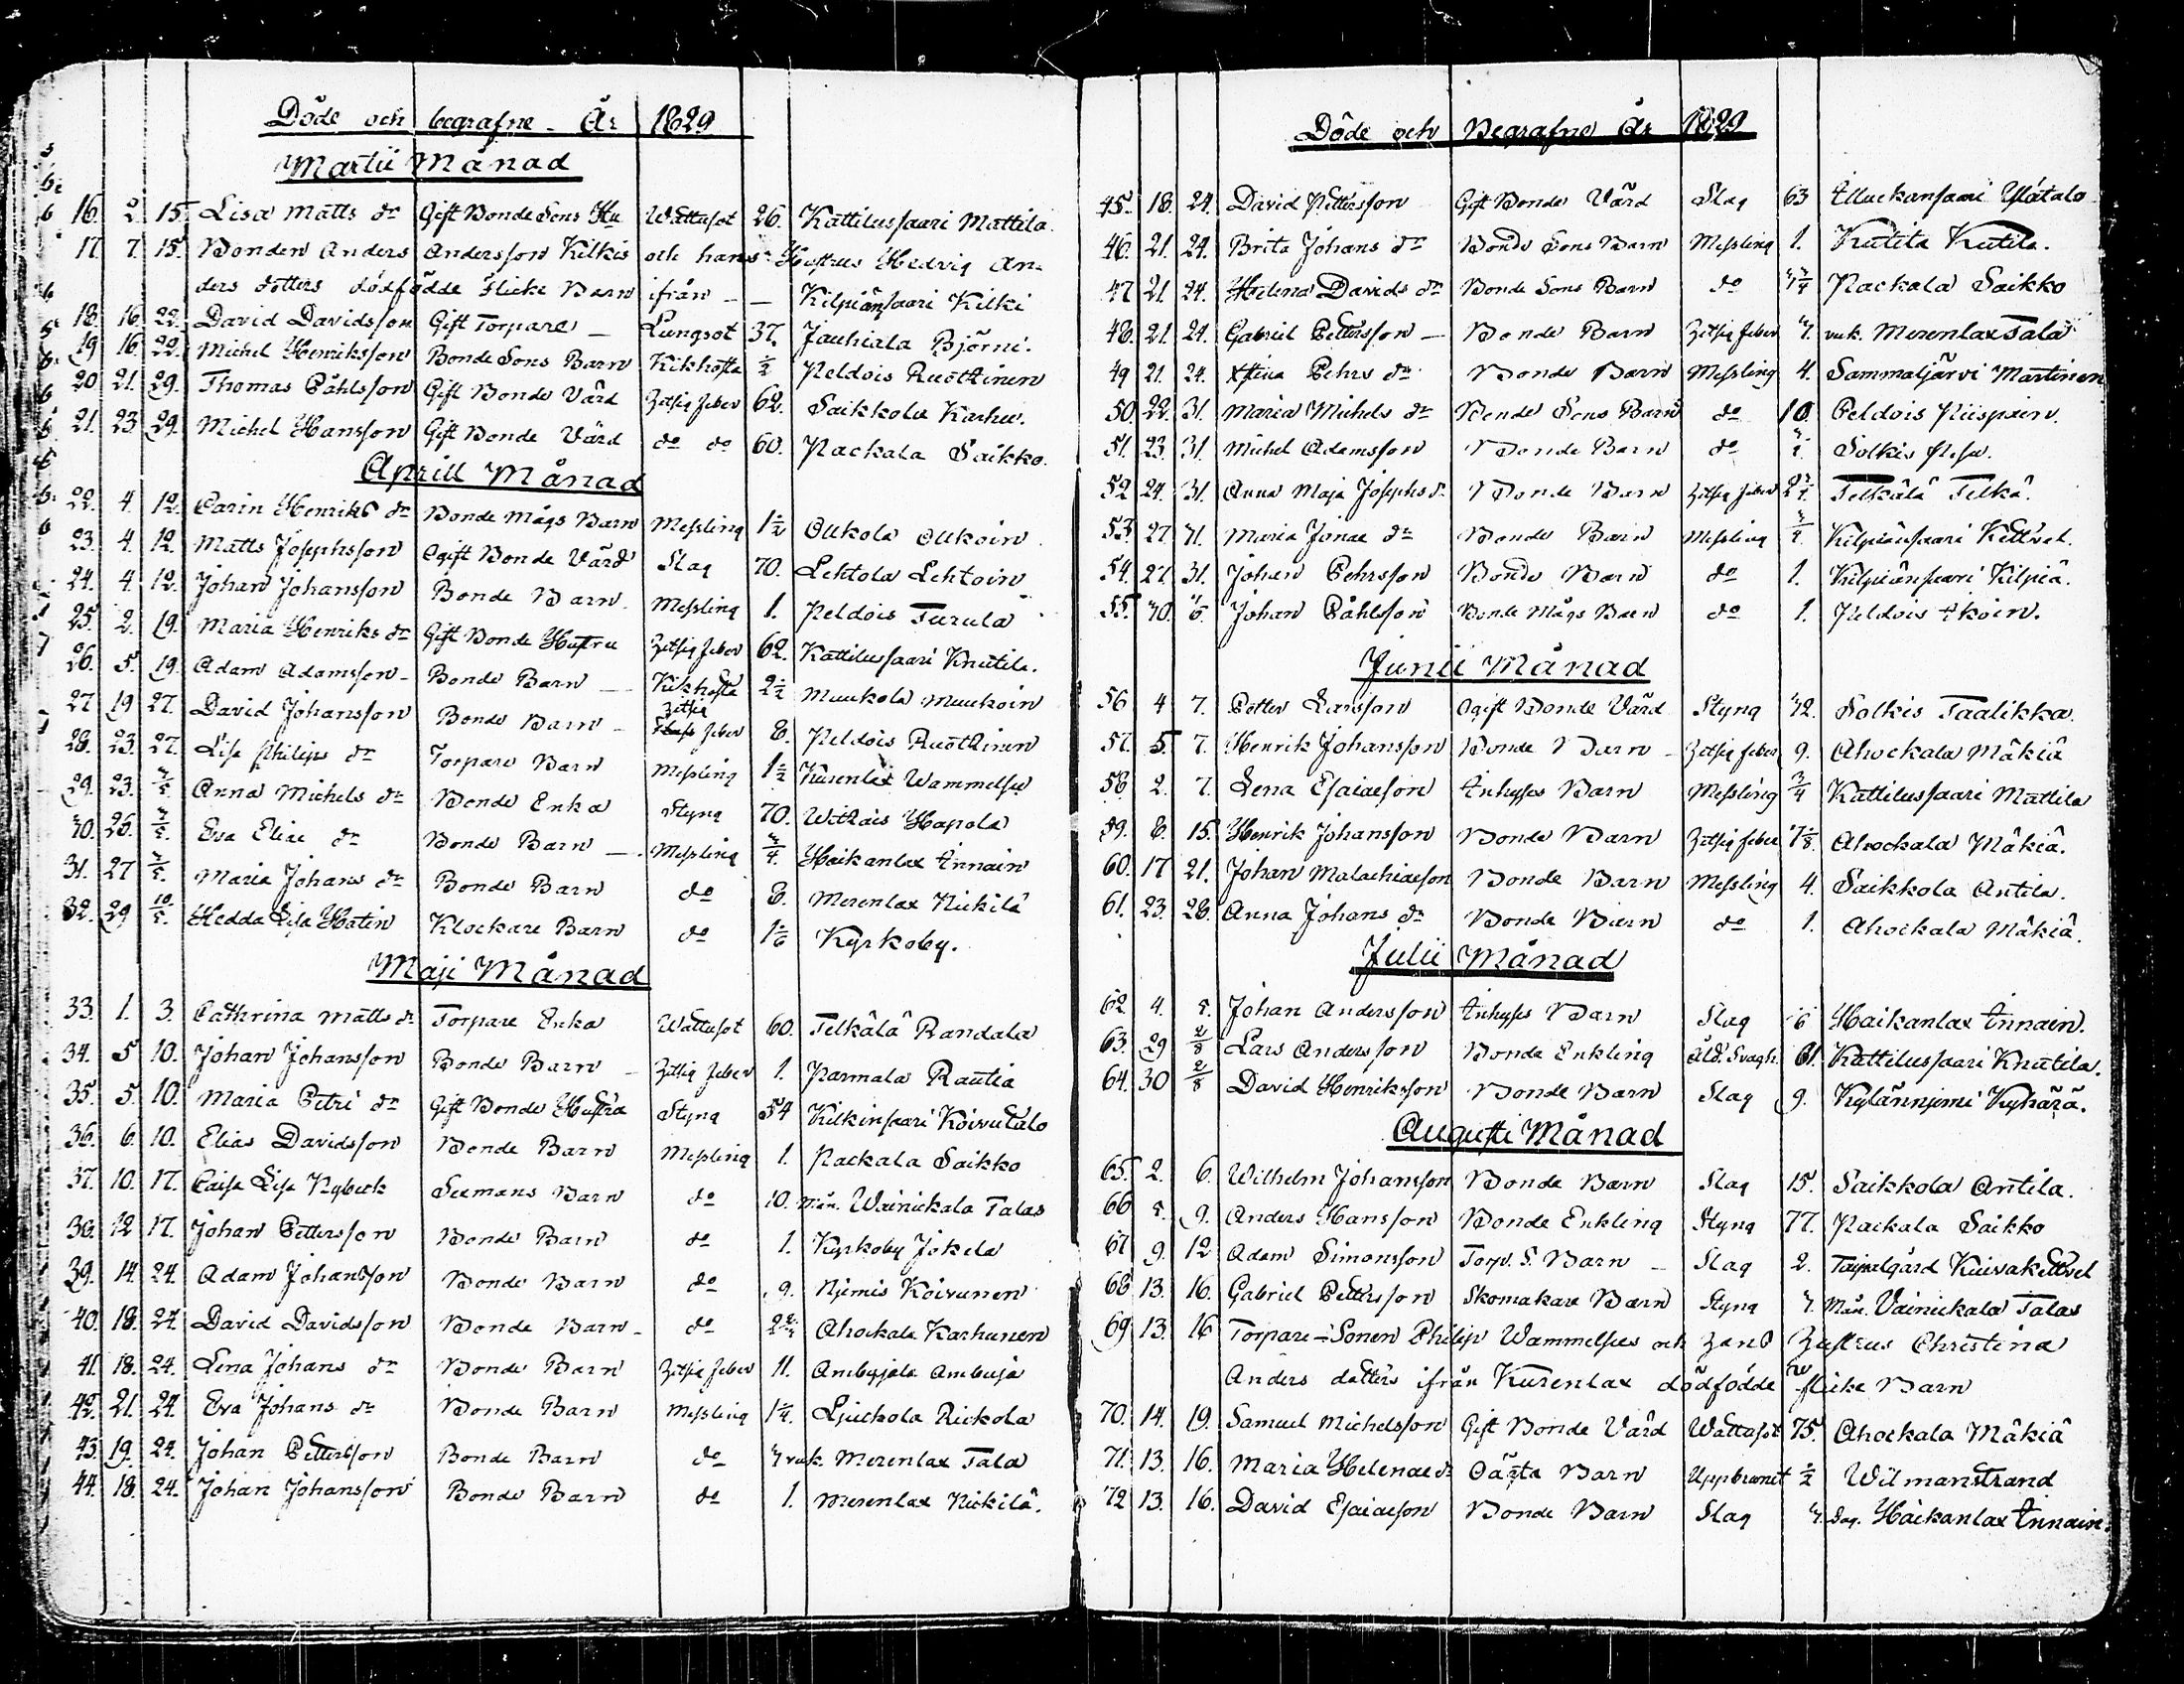 Döde och begrafne År 1829
Martii Månad
16. 2. 15. Lisa Matts dr Gift Bonde Sons Hu Wattusot 26. Kattilussaari Mattila.
17. 7. 15. Bonden Anders Andersson Kilkis och hans Hustrus Hedvig An-
ders dotters dödfödde Flicke Barn ifrån — — Kilpiänsaari Kilki
18. 16. 22. David Davidsson Gift Torpare — Lungsot 37. Jauhiala Björni.
19 16. 22. Michel Henriksson Bonde Sons Barn Kikhosta ½ Peldois Ruottinen
20 21. 29. Thomas Påhlsson Gift Bonde Värd Hetsig feber 62. Saikkola Karhu.
21. 23 29. Michel Hansson Gift Bonde Värd do do 60. Packala Saikko.
Aprill Månad
22. 4. 12. Carin Henriks dr Bonde Mågs Barn Messling 1½ Ollkola Ollkoin
23. 4. 12. Matts Josephsson Ogift Bonde Värd Slag 70. Lehtola Lehtoin
24. 4. 12. Johan Johansson Bonde Barn. Messling 1. Peldois Turula
25. 2. 19. Maria Henriks dr Gift Bonde Hustru Hetsig feber 62. Kattilussaari Knutila.
26. 5. 19. Adam Adamsson - Bonde Barn — Kikhosta 2½ Muukola Muukoin
27 19 27. David Johansson Bonde Barn - Hetsig feber 8. Peldois Ruottinen
28. 23. 27. Lisa Philips dr Torpare Barn Messling 1½ Kurenlax Wammelsu
29. 23. 3/5. Anna Michels dr Bonde Enka Styng 70. Witkais Hapola
30. 26. 3/5. Eva Eliæ dr Bonde Barn — Messling ¾. Haikanlax Innain
31. 27 3/5. Maria Johans dr Bonde Barn do 8. Merenlax Nickilä
32. 29 10/5. Hedda Lisa Hatin Klockare Barn do 1 1/6 Kyrkoby.
Maji Månad
33. 1. 3. Cathrina Matts dr Torpare Enka Wattusot 60. Telkälä Randala
34. 5 10. Johan Johansson Bonde Barn - Hetsig feber 1. Parmala Rautia
35. 5. 10. Maria Petri dr Gift Bonde Hustru Styng 54 Kilkinsaari Koivutalo
36. 6. 10. Elias Davidsson Bonde Barn Messling 1. Packala Saikko
37. 10. 17. Caisa Lisa Nybeck Seemans Barn do 10. Mån. Wainickala Talas
38. 12 17. Johan Pettersson Bonde Barn do 1. Kyrkoby Jokela
39. 14. 24. Adam Johansson Bonde Barn do 9. Njemis Koivunen
40. 18. 24. David Davidsson Bonde Barn - do Ahockala Karhunen
41. 18. 24. Lena Johans dr Bonde Barn Hetsig feber 11. Ambujala Ambuja
42. 21. 24. Eva Johans dr Bonde Barn Messling 1¼. Ljuckola Rickola
43. 19. 24. Johan Pettersson Bonde Barn do 3 vek. Merenlax Tala
44. 18. 24. Johan Johansson Bonde Barn do 1. Merenlax Nickilä.
Döde och Begrafne År 1829
45. 18. 24. David Pettersson Gift Bonde Värd Slag 63 Illuckansaari Ylätalo
46. 21. 24. Brita Johans dr Bonde Sons Barn Messling 1. Kutila Kutila.
47 21. 24. Helena Davids dr Bonde Sons Barn do Packala Saikko
48. 21. 24. Gabriel Pettersson — Bonde Barn Hetsig feber 3. vek. Merenlax Tala
49 21. 24. Xstina Pehrs dr Bonde Barn Messling 4. Sammaljärvi Martinen
50. 22. 31. Maria Michels dr Bonde Sons Barn do 10. Peldois Piispain.
51. 23. 31. Michel Adamsson Bonde Barn do Solkis
52 24. 31. Anna Maja Josephs dr Bonde Barn Hetsig feber Telkälä Telkä.
53. 27. 31. Maria Jonæ dr Bonde Barn Messling Kilpiänsaari Kettvel.
54. 27. 31. Johan Pehrsson Bonde Barn do 1. Kilpiänsaari Kilpiä.
55. 30. Johan Påhlsson Bonde Mågs Barn do 1. Peldois Ikoin.
Junii Månad
56 4 7. Petter Larsson Ogift Bonde Värd Styng 32. Solkis Taalikka.
57. 5. 7. Henrik Johansson Bonde Barn - Hetsig feber 9. Ahockala Mäkiä
58 2. 7. Lena Esaiæson Inhyses Barn Messling ¾ Kattilussaari Mattila
59. 8. 15. Henrik Johansson Bonde Barn Hetsig feber Ahockala Mäkiä.
60. 17 21. Johan Malachiæson Bonde Barn Messling 4. Saikkola Antila.
61. 23. 28. Anna Johans dr Bonde Barn do 1. Ahockala Mäkiä.
Julii Månad
62 4. 5. Johan Andersson Inhyses Barn Slag 6 Haikanlax Innain.
63. 29 2/8 Lars Andersson Bonde Enkling Åld. Svagh. 61. Kattilussaari Knutila.
64. 30 2/8 David Henriksson Bonde Barn Slag 9. Kylännjemi Kyhärä.
Augusti Månad
65. 2. 6. Wilhelm Johansson Bonde Barn Slag 15. Saikkola Antila.
66 5. 9. Anders Hansson Bonde Enkling Styng 77. Packala Saikko
67 9. 12 Adam Simonsson Torp. S. Barn — Slag 2. Taipalgård Kuivakettvel
68 13. 16. Gabriel Pettersson Skomakare Barn Styng 3. Mån. Vainickala Talas
69 13. 16 Torpare-Sonen Philip Wammelsus och hans Hustrus Christina
Anders dotters ifrån Kurenlax dödfödde flicke Barn
70. 14. 19. Samuel Michelsson Gift Bonde Värd Wattusot 75. Ahockala Mäkiä
71. 13. 16. Maria Helenæ dr Oäkta Barn Uppbrunit ½ Wilmanstrand
72 13. 16. David Esaiæson Bonde Barn Slag 3. Dag. Haikanlax Innain.